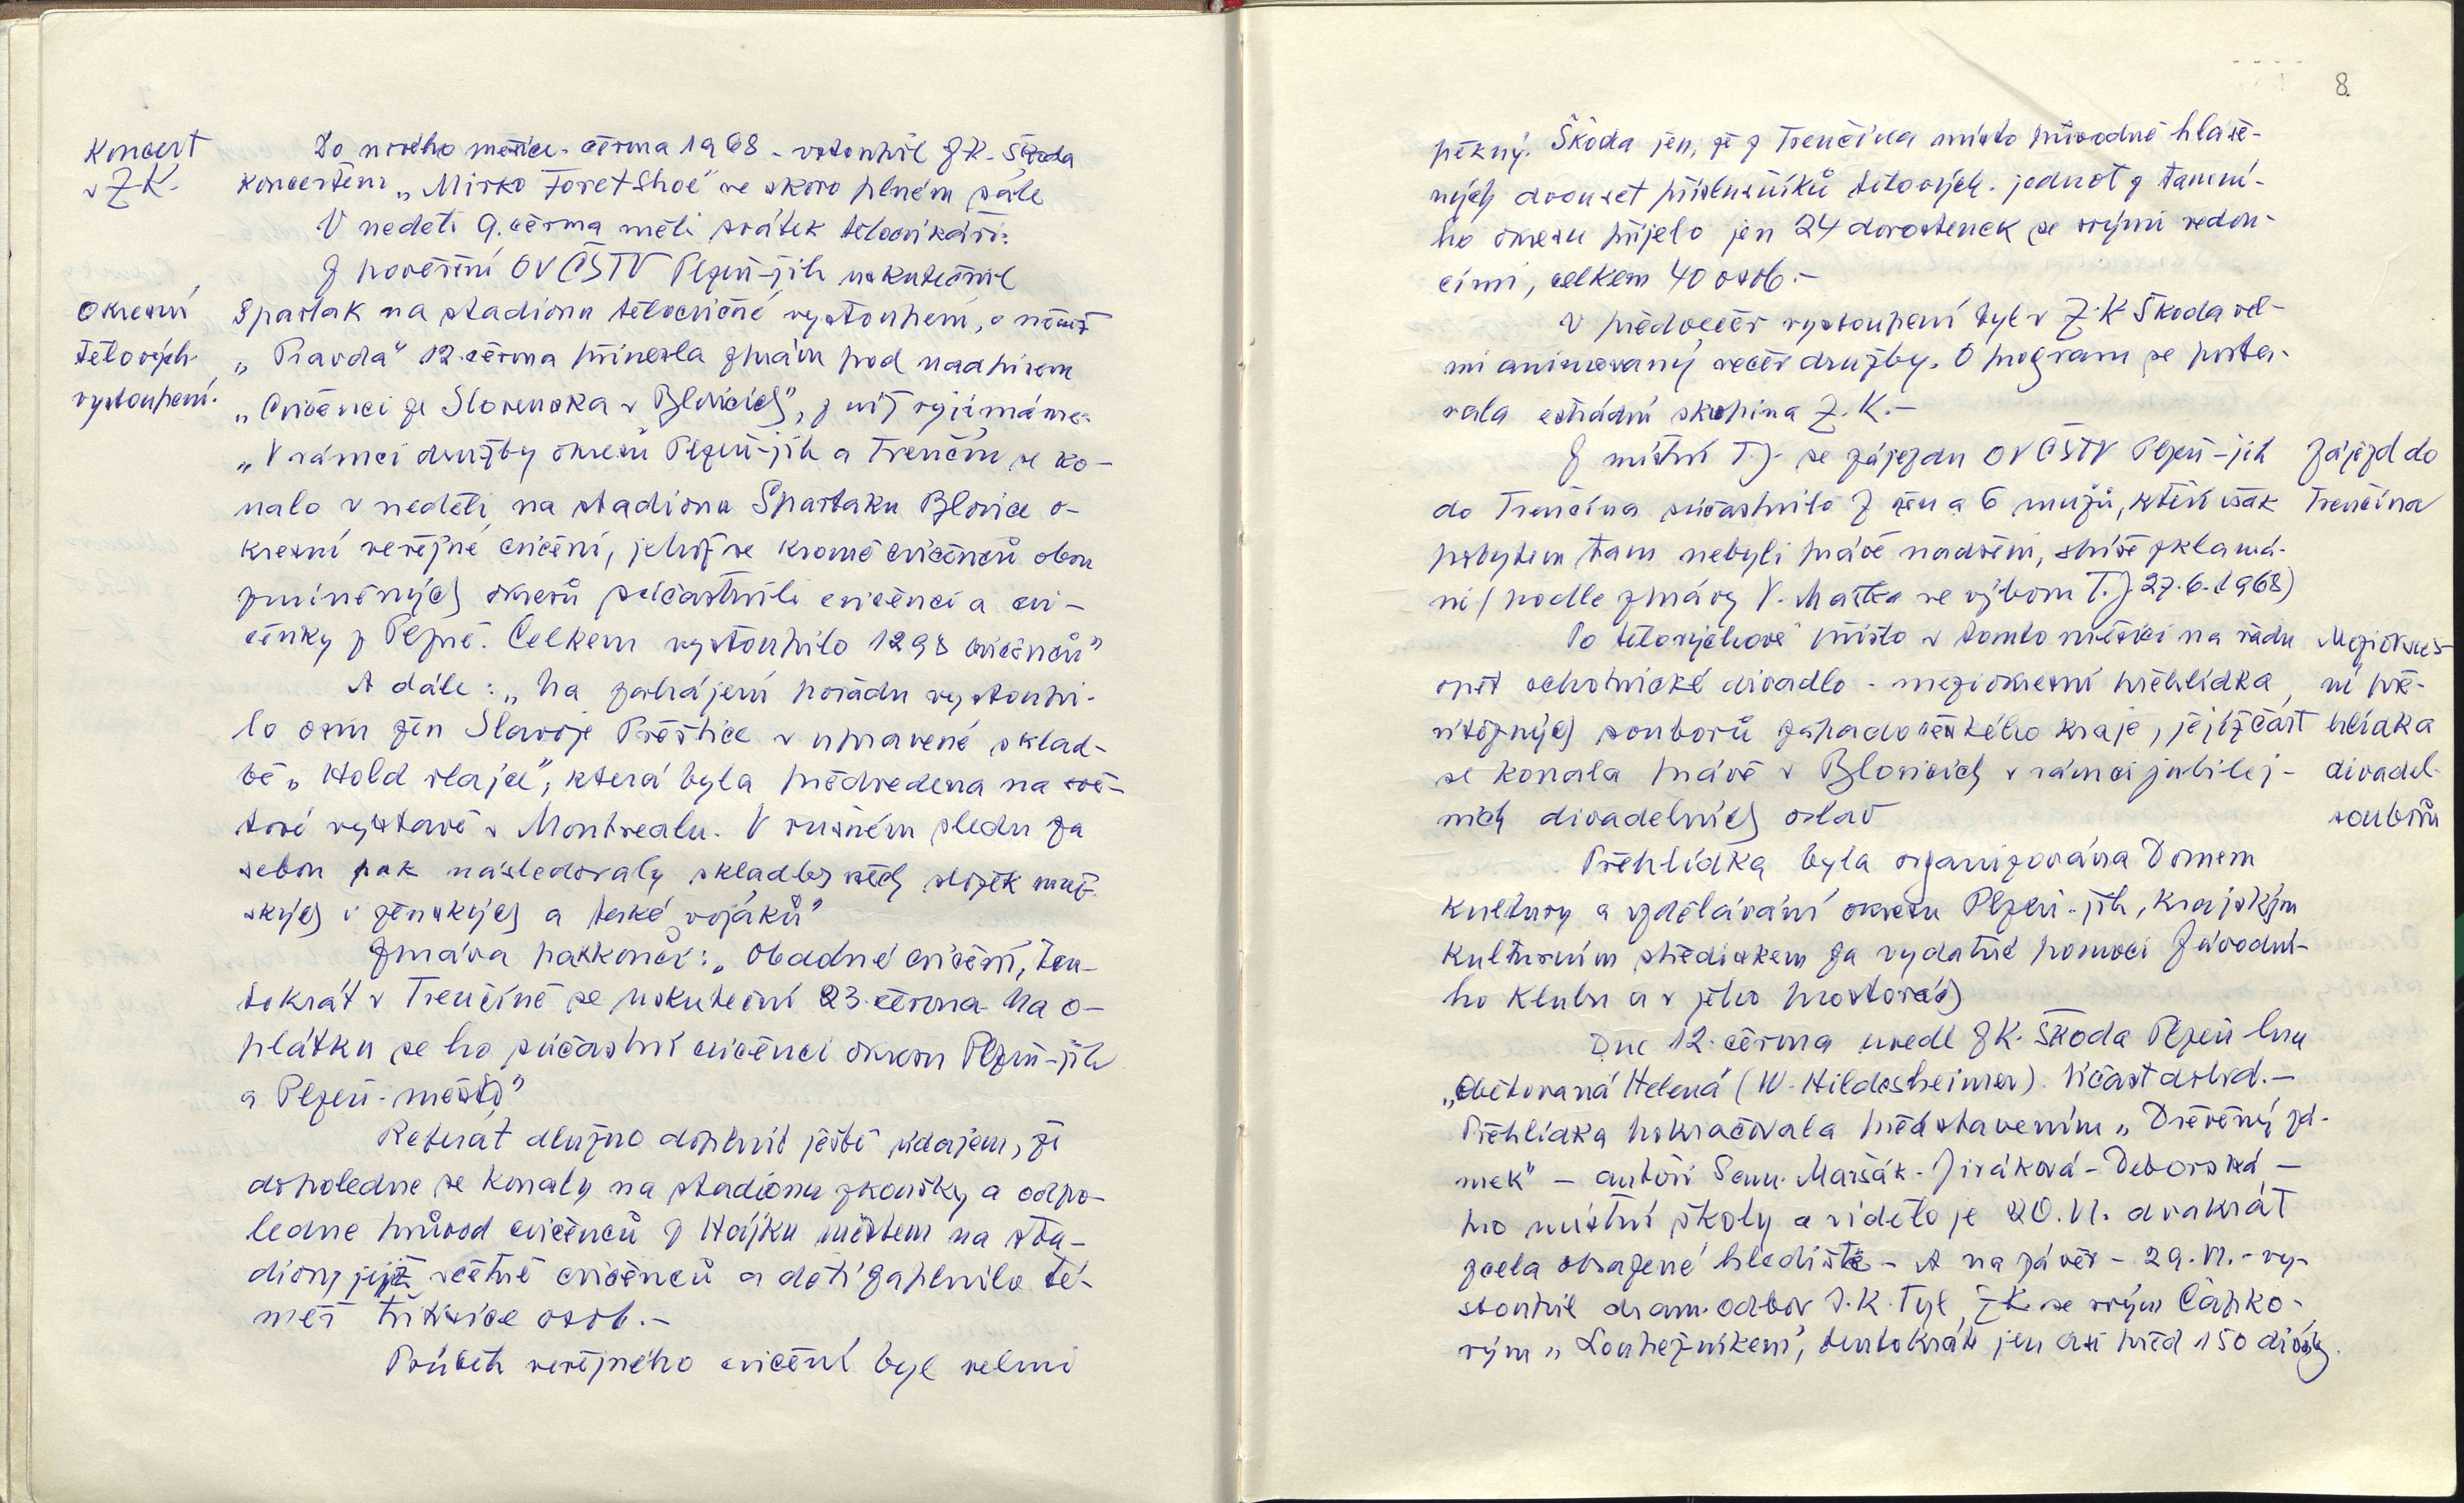 Koncert
v Z.K.
Do nového měsíce - června 1968 - vstoupil Z.K. Škoda
koncertem „Mirko Foret Shoe" ve skoro plném sále
V neděli 9. června měli svátek tělocvikáři:
Z pověření OV ČSTV Plzeň-jih uskutečnil
Okresní
tělových.
vystoupení.
Spartak na stadionu tělocvičné vystoupení, o němž
„Pravda" 12. června přinesla zprávu pod nadpisem
„Cvičenci ze Slovenska v Blovicích", z níž vyjímáme:
„V rámci družby okresů Plzeň-jih a Trenčín se ko-
nalo v neděli na stadionu Spartaku Blovice o-
kresní veřejné cvičení, jehož se kromě cvičenců obou
zmíněných okresů súčastnili cvičenci a cvi-
čenky z Plzně. Celkem vystoupilo 1298 cvičenců"
A dále: „Na zahájení pořadu vystoupi-
lo osm žen Slavoje Přeštice v upravené sklad-
bě „Hold vlajce", která byla předvedena na svě-
tové výstavě v Montrealu. V rušném sledu za
sebou pak následovaly skladby všech složek muž-
ských i ženských a také vojáků"
Zpráva pak končí: „Obadné cvičení, ten-
tokrát v Trenčíně se uskuteční 23. června. Na o-
plátku se ho súčastní cvičenci okresu Plzeň-jih
a Plzeň-město"
Referát dlužno doplnit ještě údajem, že
dopoledne se konaly na stadionu zkoušky a odpo-
ledne průvod cvičenců z Hájku městem na sta-
dion, jejž včetně cvičenců a dětí zaplnilo té-
měř tři tisíce osob.-
Průběh veřejného cvičení byl velmi
8.
pěkný. Škoda jen, že z Trenčína místo původně hláše-
ných dvouset příslušníků tělových. jednot z tamní-
ho okresu přijelo jen 24 dorostenek se svými vedou-
cími, celkem 40 osob.-
V předvečer vystoupení byl v Z.K Škoda vel-
mi animovaný večer družby. O program se posta-
rala estrádní skupina Z.K.-
Z místní T.J. se zájezdu OV ČSTV Plzeň-jih
do Trenčína súčastnilo 7 žen a 6 mužů, kteří však
pobytem tam nebyli právě nadšeni, spíše zklamá-
ni (podle zprávy V. Maška ve výboru T.J. 27.6.1968)
Zájezd do
Trenčína
Po tělovýchově přišlo v tomto měsíci na řadu
opět ochotnické divadlo - meziokresní přehlídka
vítězných souborů západočeského kraje, jejíž část
se konala právě v Blovicích v rámci jubilej-
ních divadelních oslav
Meziokres-
ní pře-
hlídka
divadel.
souborů
Přehlídka byla organizována Domem
kultury a vzdělávání okresu Plzeň-jih, Krajským
kulturním střediskem za vydatné pomoci Závodní-
ho klubu a v jeho prostorách
Dne 12. června uvedl Z.K. Škoda Plzeň hru
„Obětovaná Helena" (W. Hildesheimer). Účast dobrá.-
Přehlídka pokračovala představením „Dřevěný zá-
mek" - autoři Sam. Maršák - Jiráková - Deborská -
pro místní školy a vidělo je 20. VI. dvakrát
zcela obsazené hlediště - A na závěr - 29. VI. - vy-
stoupil dram. odbor J.K. Tyl, Z.K. se svým Čapko-
vým „Loupežníkem", tentokrát jen asi před 150 diváky.